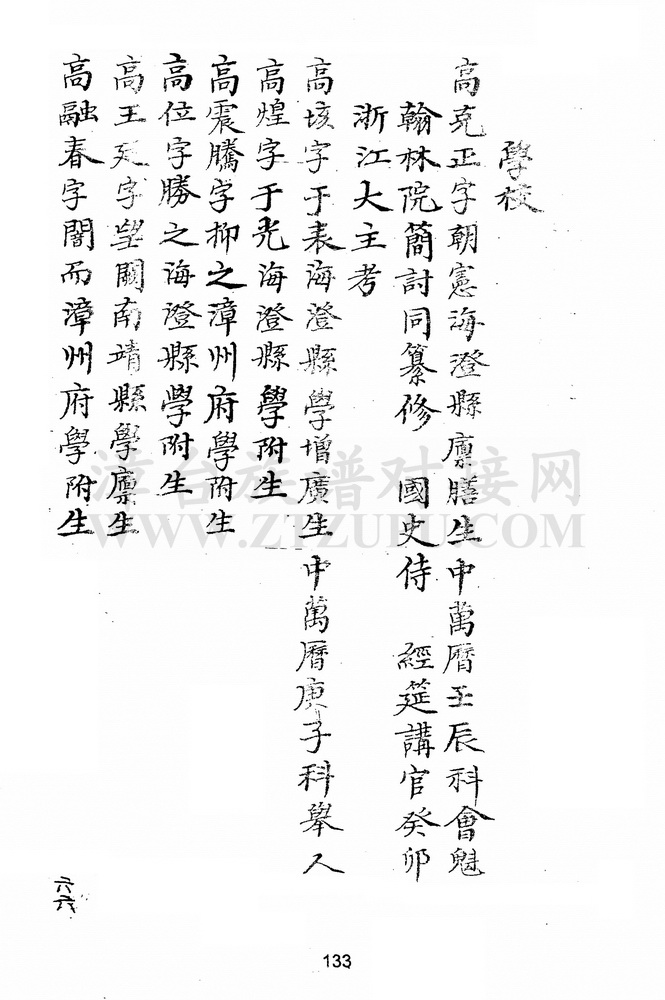 學校
高克正字朝憲海澄縣廩膳生中萬曆壬辰科會魁
翰林院簡討同纂修 國史侍 經筵講官癸卯
浙江大主考
高垓字于表海澄縣學增廣生中萬曆庚子科舉人
高煌字于光海澄縣學附生
高震騰字抑之漳州府學附生
高位字勝之海澄縣學附生
高王廷字望闕南靖縣學廩生
高融春字闇而漳州府學附生
六六
133
漳台族谱对接网
WWW.ZTZUPU.COM